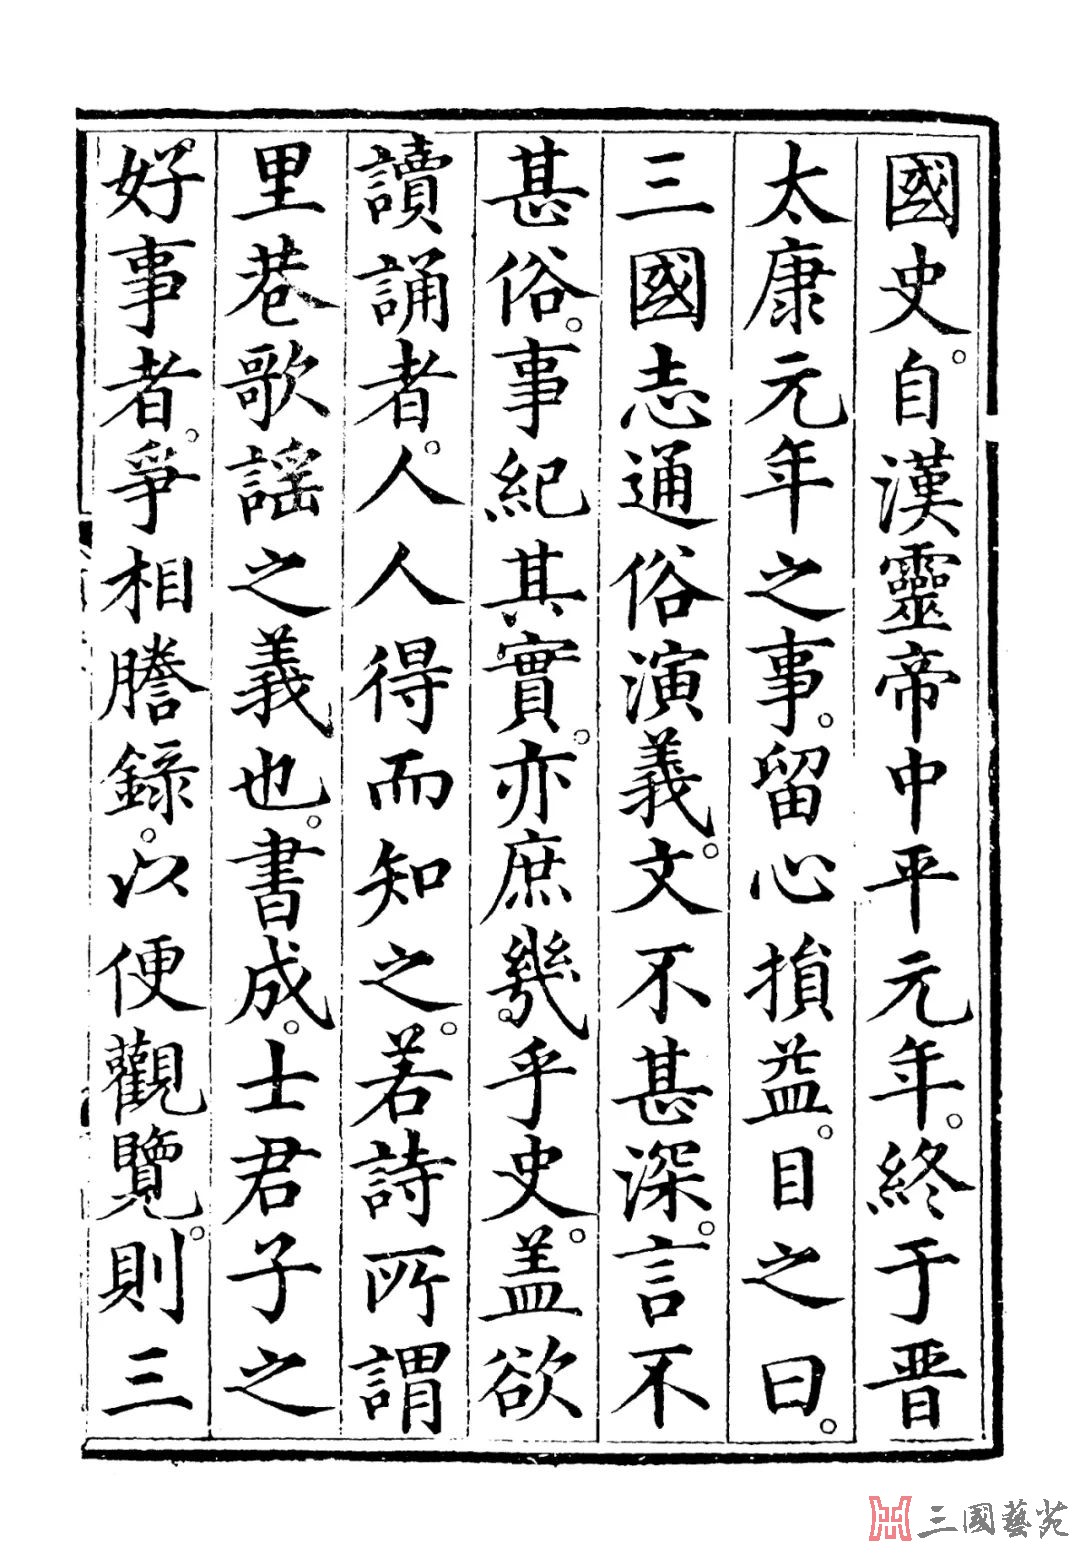 國史。自漢靈帝中平元年。終于晋
太康元年之事。留心損益。目之曰。
三國志通俗演義。文不甚深。言不
甚俗。事紀其實。亦庶幾乎史。盖欲
讀誦者。人人得而知之。若詩所謂
里巷歌謡之義也。書成。士君子之
好事者。爭相謄錄。以便觀覽。則三
三國藝苑